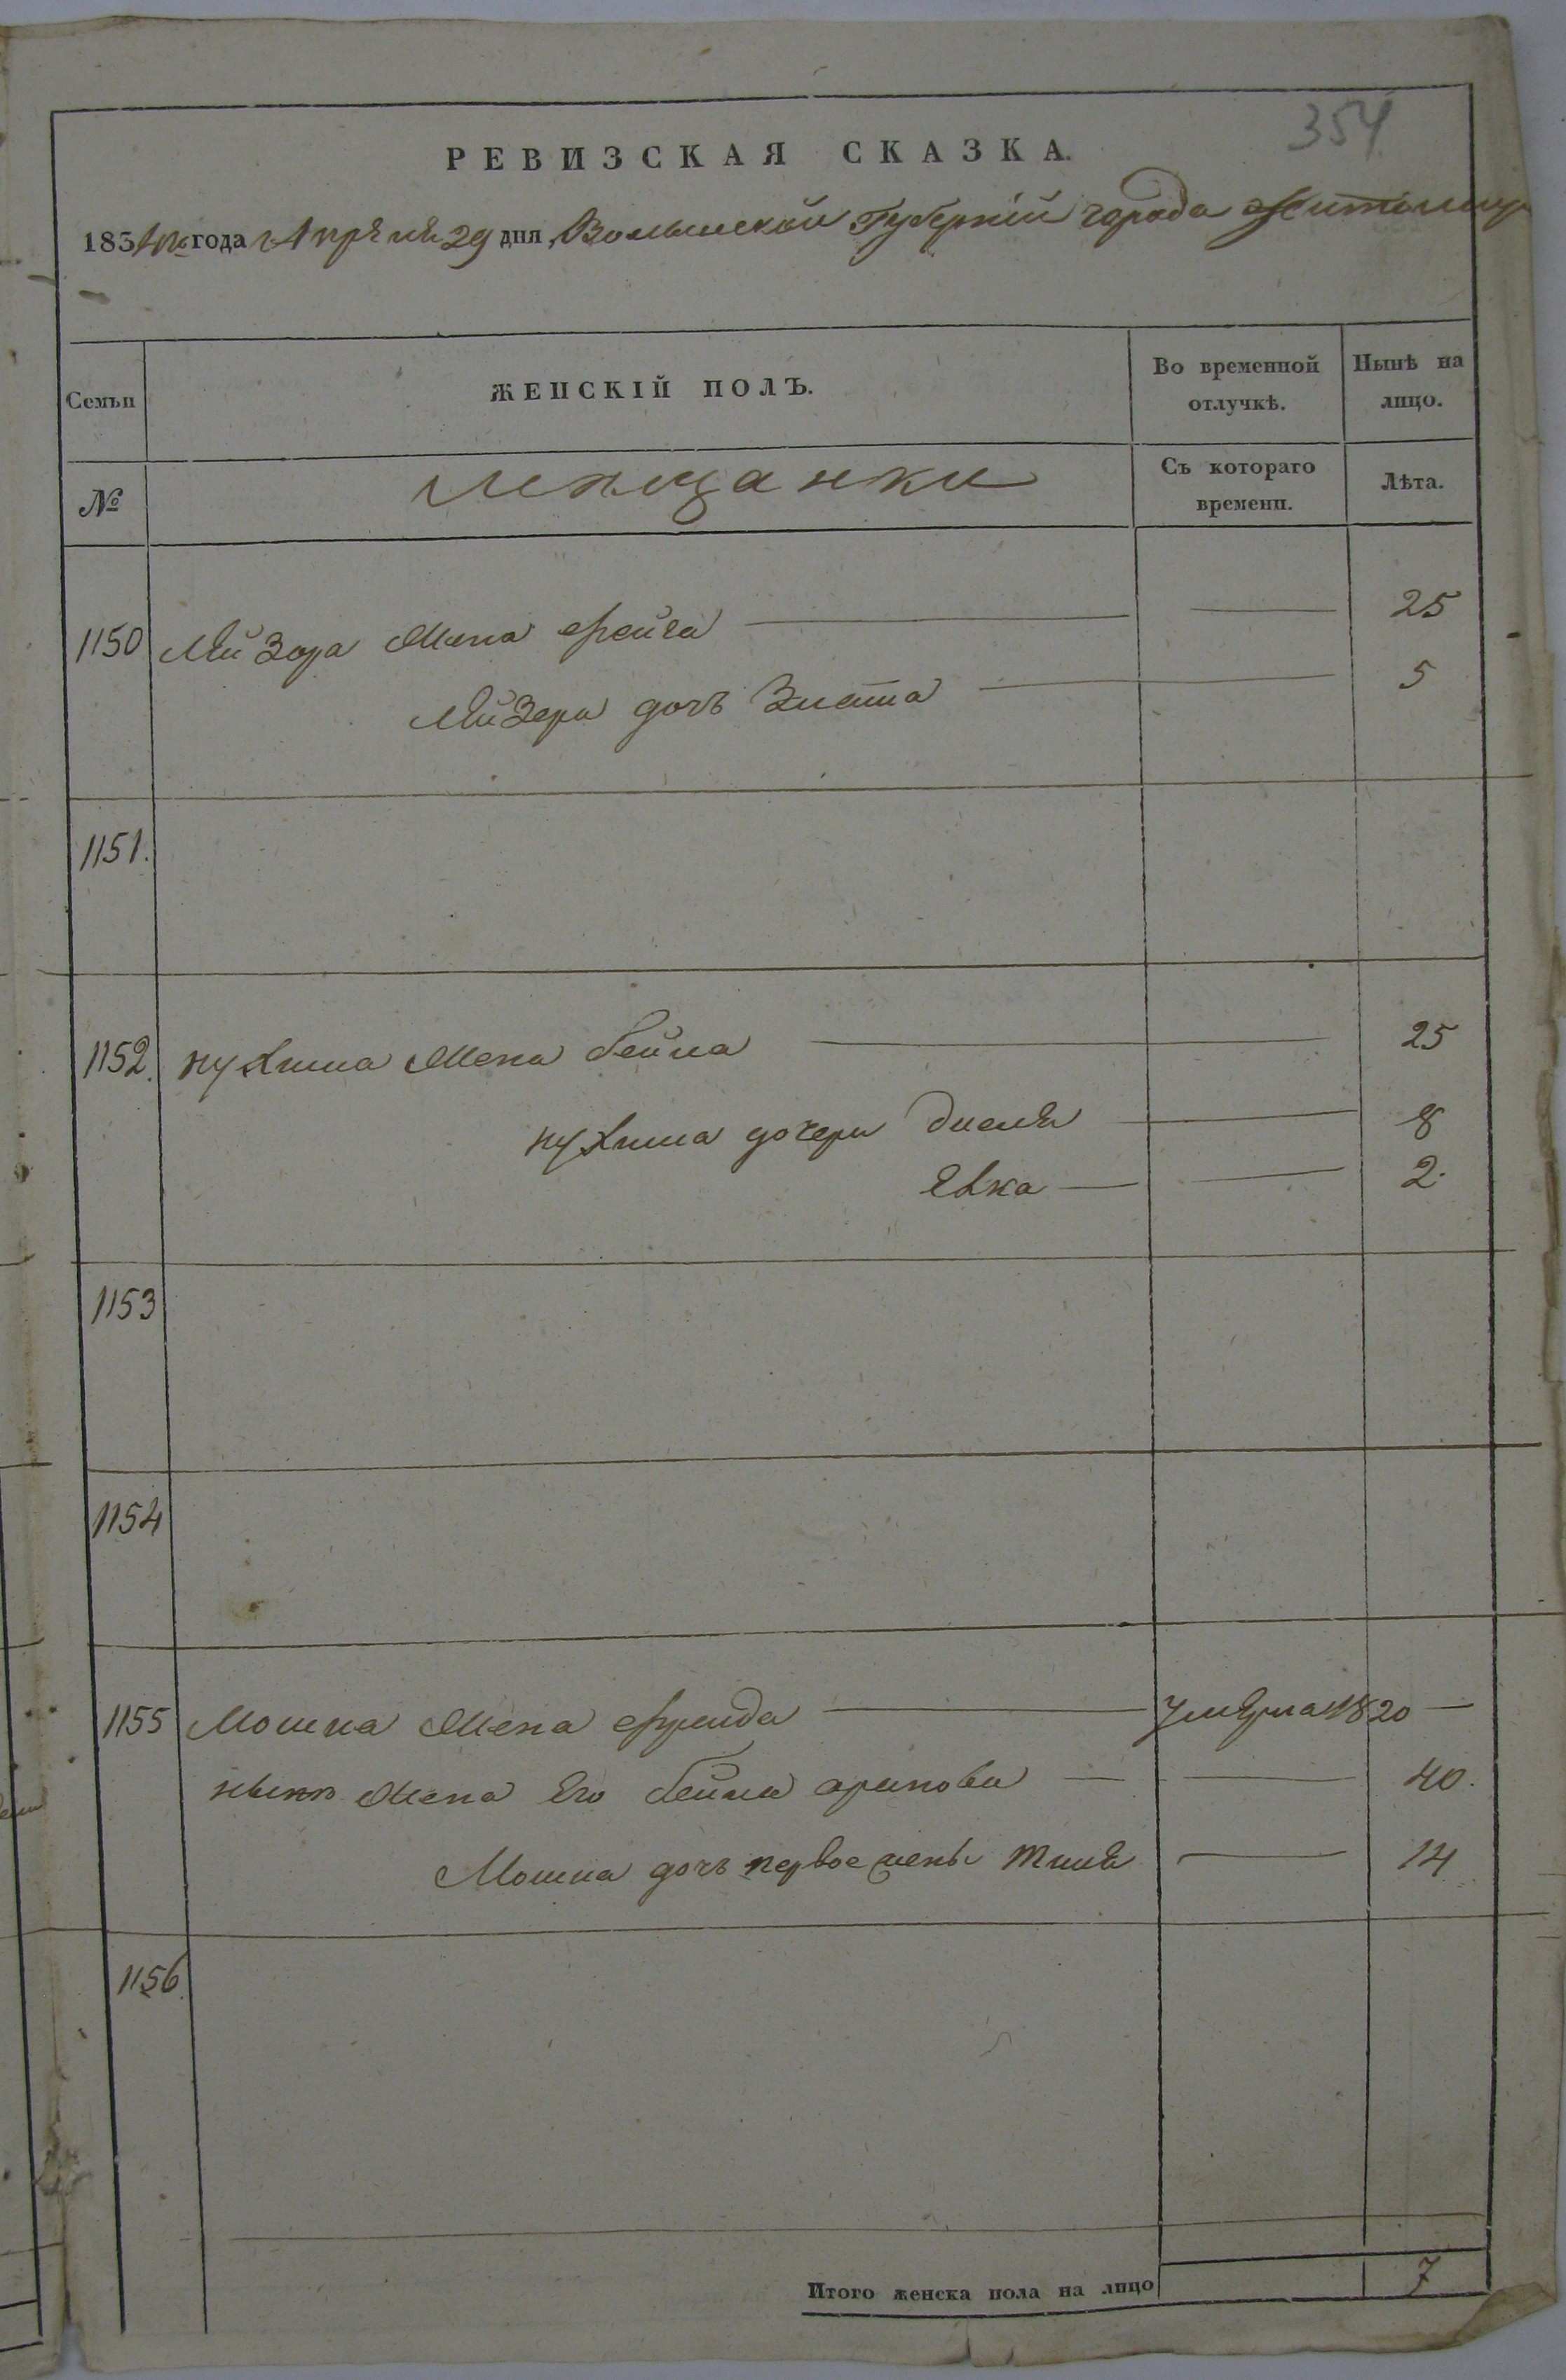 354
РЕВИЗСКАЯ СКАЗКА.
1834го года Апреля 29 дня, Волынской Губернiи города Житомира
Семьи
ЖЕНСКIЙ ПОЛЪ.
Во временной отлучкѣ.
Нынѣ на лицо.
№
Мещанки
Съ котораго времени.
Лѣта.
1150 Лейзора жена фейга 25
Лейзера дочь Злата 5
1151.
1152. нухима жена бейла 25
нухима дочери 8
Хвка 2.
1153
1154
1155 Мошка жена фрейда Умерла 1820
нынѣ жена Его бейла 40.
Мошка дочь первое жены 14
1156
Итого женска пола на лицо 7